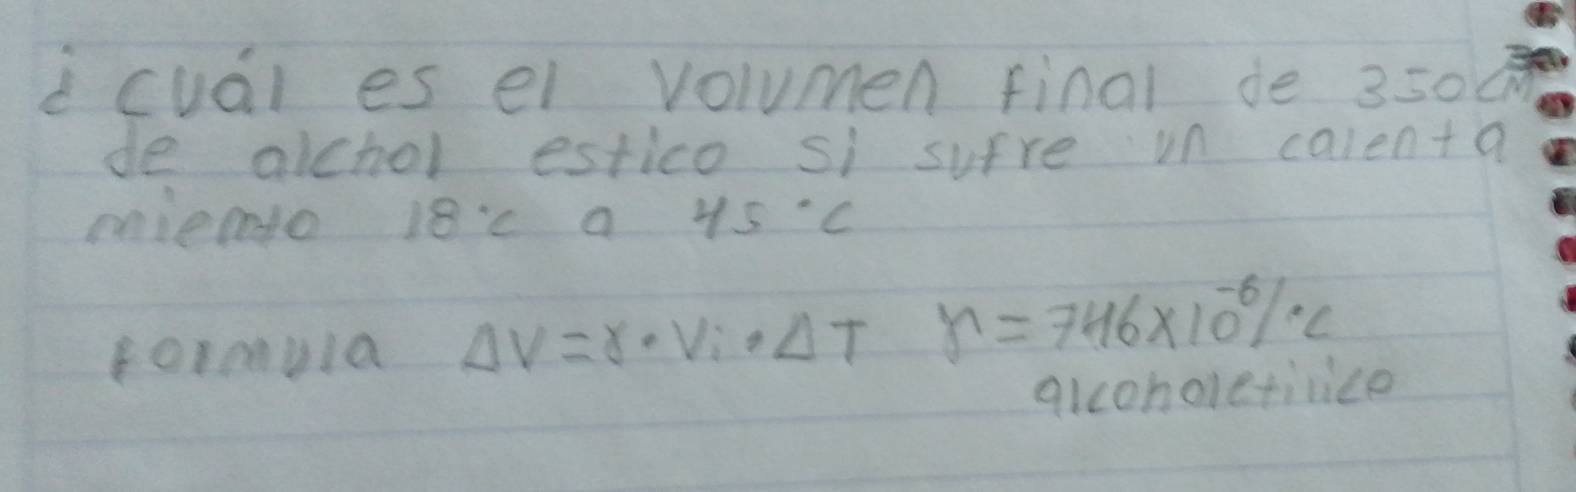 ¿cuál es el volumen final de 350cm³
de alchol estico si sufre un calenta
miento 18°c a 45°c
formula ΔV=γ•Vi•ΔT γ=746x10⁻⁶/°c
alcoholetilico